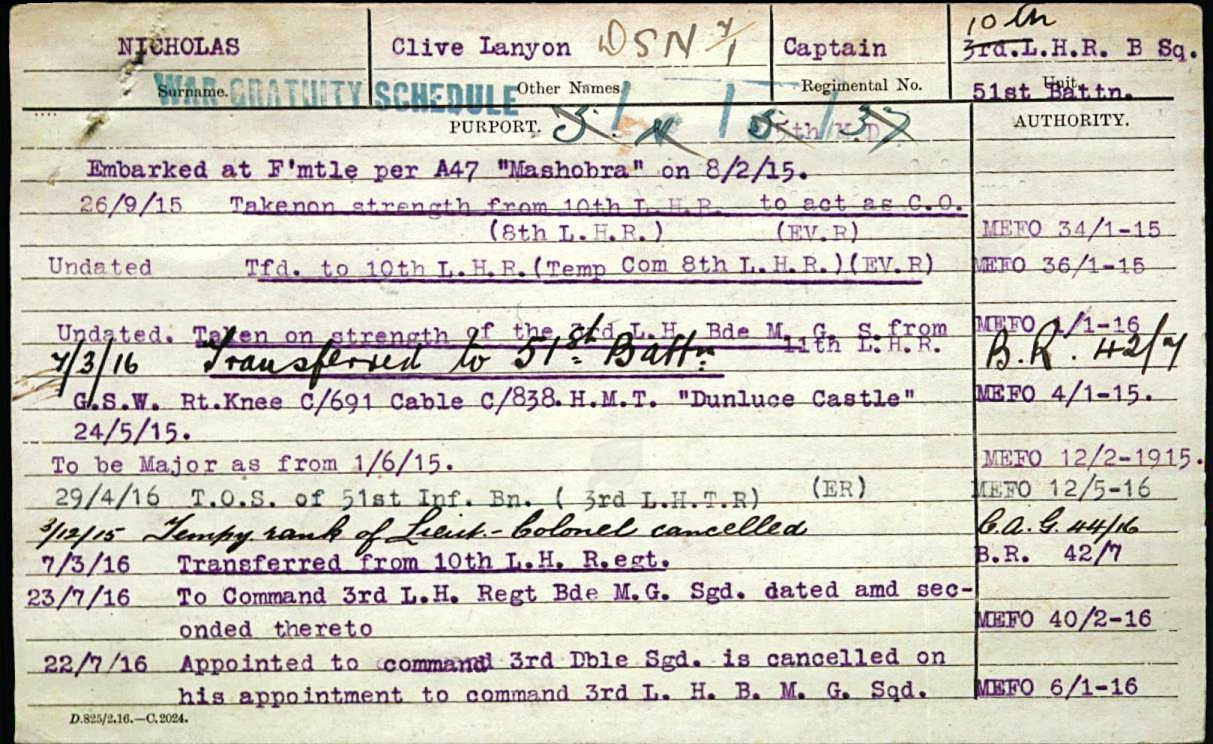 NICHOLAS Clive Lanyon DSN 7/1 Captain 10th
3rd.L.H.R. B Sq.
Surname. Other Names. Regimental No. Unit.
WAR GRATUITY SCHEDULE 51st Battn.
PURPORT. AUTHORITY.
Embarked at F'mtle per A47 "Mashobra" on 8/2/15.
26/9/15 Takenon strength from 10th L.H.R. to act as C.O.
(8th L.H.R.) (EV.R) MEFO 34/1-15
Undated Tfd. to 10th L.H.R.(Temp Com 8th L.H.R.)(EV.R) MEFO 36/1-15
Undated. Taken on strength of the 3rd L.H. Bde M. G. S. from MEFO 1/1-16
11th L.H.R.
7/3/16 Transferred to 51st Battn. B.R. 42/7
G.S.W. Rt.Knee C/691 Cable C/838.H.M.T. "Dunluce Castle" MEFO 4/1-15.
24/5/15.
To be Major as from 1/6/15. MEFO 12/2-1915.
29/4/16 T.O.S. of 51st Inf. Bn. ( 3rd L.H.T.R) (ER) MEFO 12/5-16
3/12/15 Tempy. rank of Lieut.-Colonel cancelled C.A.G. 44/16
7/3/16 Transferred from 10th L.H. R.egt. B.R. 42/7
23/7/16 To Command 3rd L.H. Regt Bde M.G. Sgd. dated amd sec-
onded thereto MEFO 40/2-16
22/7/16 Appointed to command 3rd Dble Sgd. is cancelled on
his appointment to command 3rd L. H. B. M. G. Sqd. MEFO 6/1-16
D.825/2.16.—C.2024.